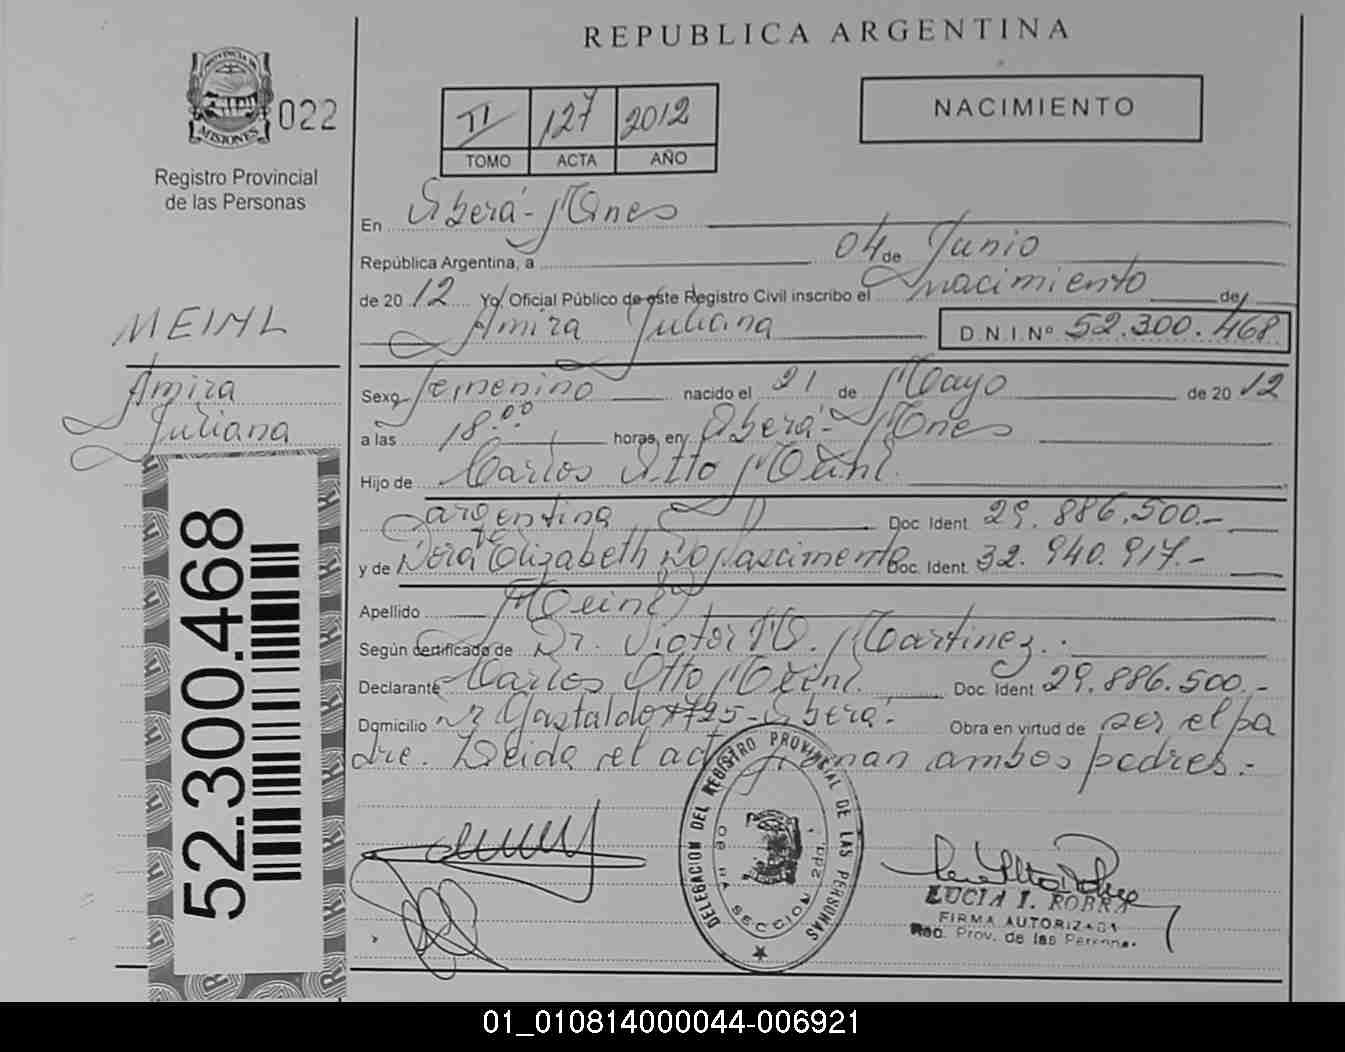 REPUBLICA ARGENTINA
PROVINCIA DE
MISIONES
022
Registro Provincial
de las Personas
II 127 2012
TOMO ACTA AÑO
NACIMIENTO
En Oberá - Mnes
República Argentina, a 04 de Junio
de 2012 Yo, Oficial Público de este Registro Civil inscribo el nacimiento de
Amira Juliana D.N.I.Nº 52.300.468
MEINL
Amira
Juliana
Sexo Femenino nacido el 21 de Mayo de 2012
a las 18:00 horas, en Oberá - Mnes
Hijo de Carlos Otto Meinl
argentina Doc. Ident. 29.886.500.-
y de Elizabeth Do Nascimento Doc. Ident. 32.940.917.-
Apellido Meinl
Según certificado de Dr. Victor M. Martinez.
Declarante Carlos Otto Meinl. Doc. Ident. 29.886.500.-
Domicilio Gastaldo - Oberá. Obra en virtud de ser el pa
dre. Leida el acta firman ambos padres.-
52.300.468
DELEGACION DEL REGISTRO PROVINCIAL DE LAS PERSONAS
SECCION 2da.
LUCIA I. ROBRA
FIRMA AUTORIZADA
Reg. Prov. de las Personas
01_010814000044-006921